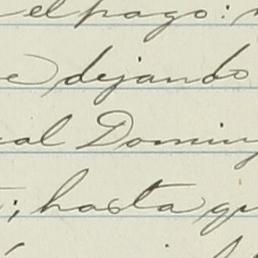 el pago:
dejando
al Domin
; hasta qu